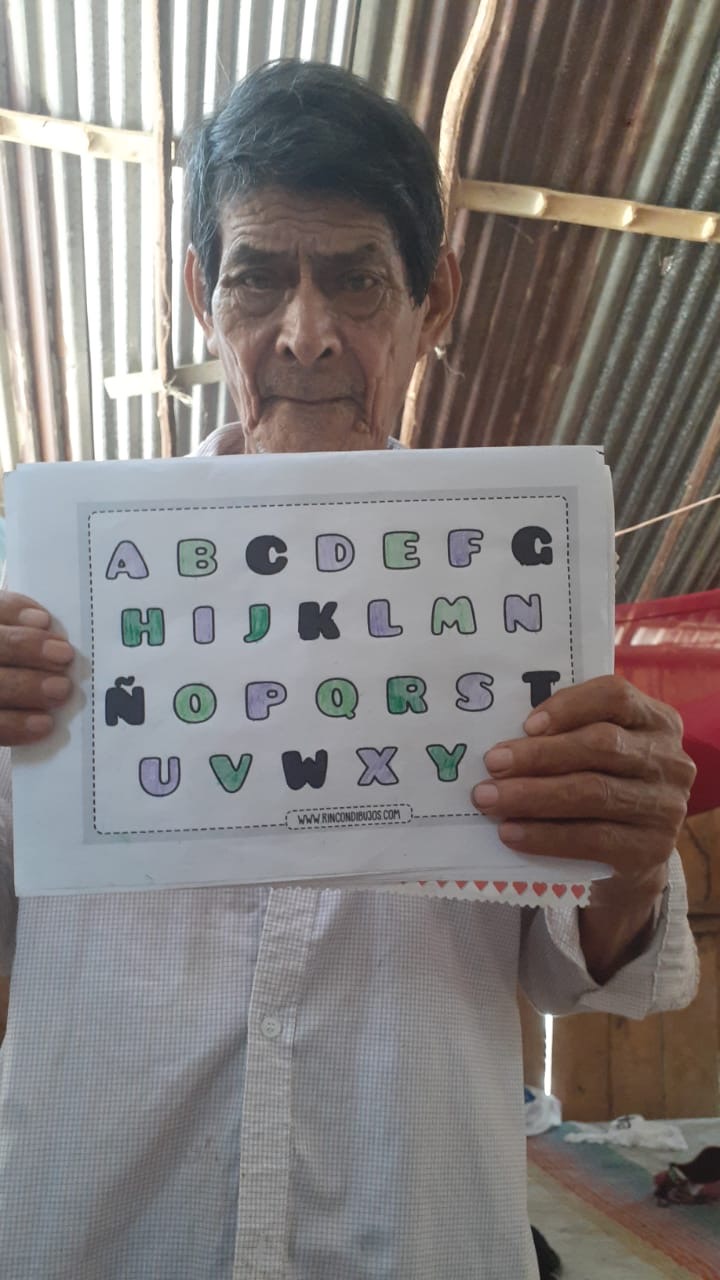 A B C D E F G
H I J K L M N
Ñ O P Q R S T
U V W X Y
WWW.RINCONDIBUJOS.COM